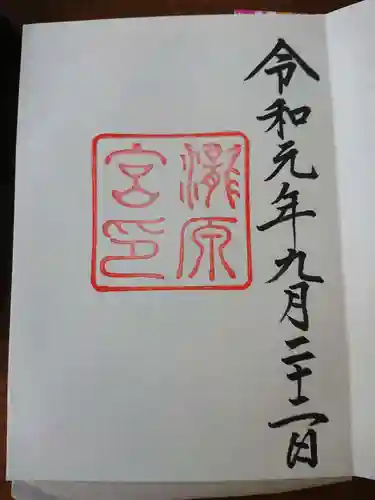 令和元年九月二十一日
瀧原
宮印